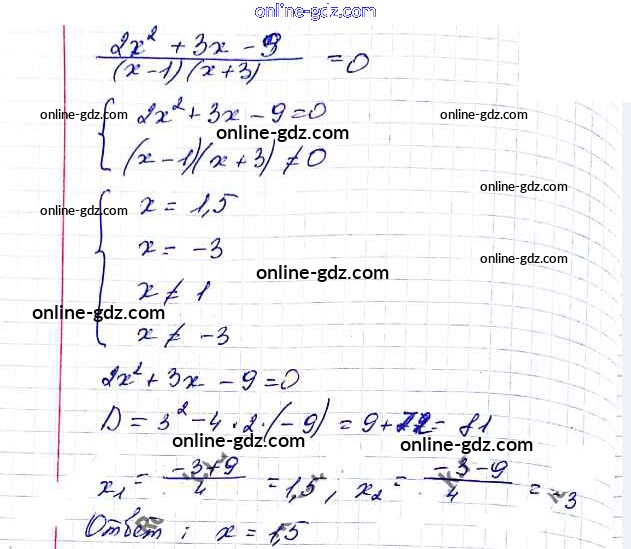 online-gdz.com
2x² + 3x - 9
(x-1)(x+3) = 0
2x² + 3x - 9 = 0
online-gdz.com online-gdz.com
online-gdz.com
(x-1)(x+3) ≠ 0
online-gdz.com
online-gdz.com x = 1,5
x = -3
online-gdz.com online-gdz.com
x ≠ 1
online-gdz.com
x ≠ -3
2x² + 3x - 9 = 0
D = 3² - 4·2·(-9) = 9 + 72 = 81
online-gdz.com online-gdz.com
x₁ = (-3+9)/4 = 1,5; x₂ = (-3-9)/4 = -3
Ответ: x = 1,5